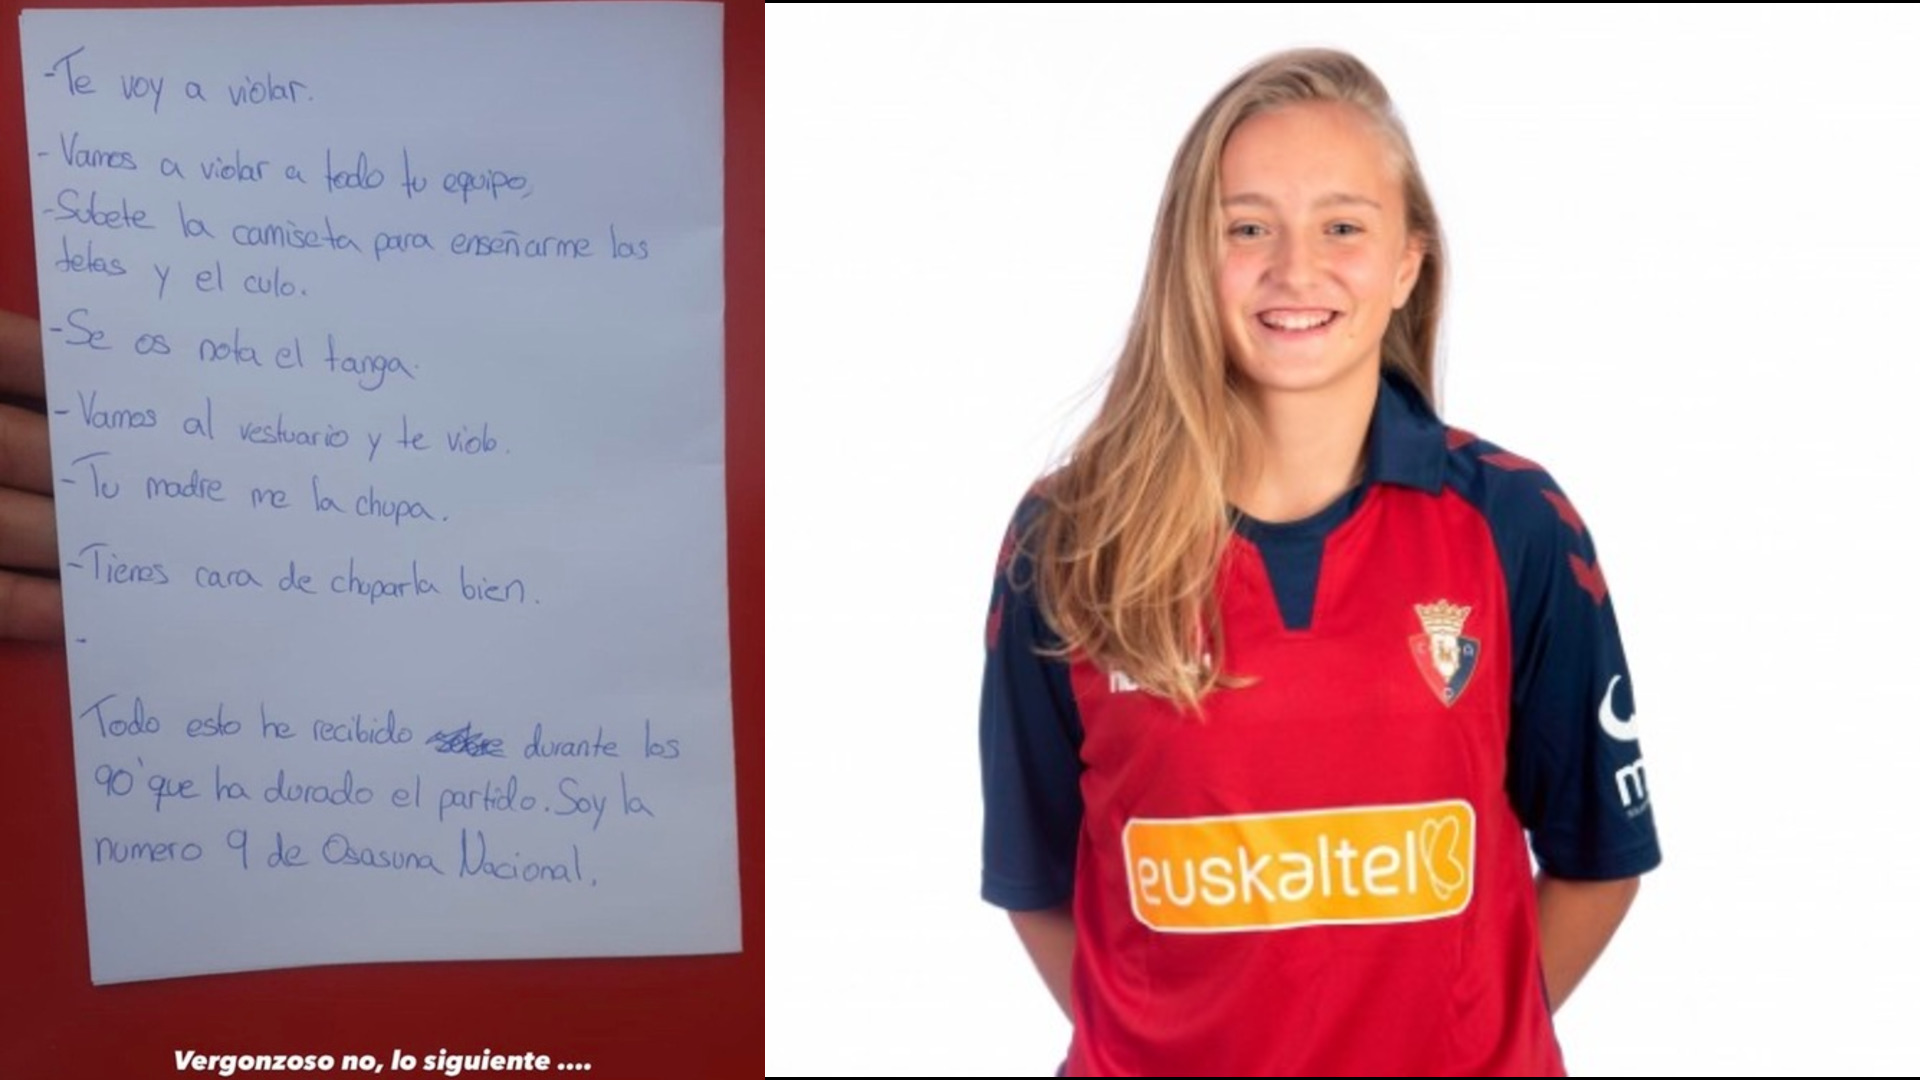 -Te voy a violar.
- Vamos a violar a todo tu equipo,
-Subete la camiseta para enseñarme las
tetas y el culo.
-Se os nota el tanga.
- Vamos al vestuario y te violo.
-Tu madre me la chupa.
-Tienes cara de chuparla bien.
-
Todo esto he recibido durante los
90' que ha durado el partido. Soy la
numero 9 de Osasuna Nacional.
Vergonzoso no, lo siguiente ....
euskaltel